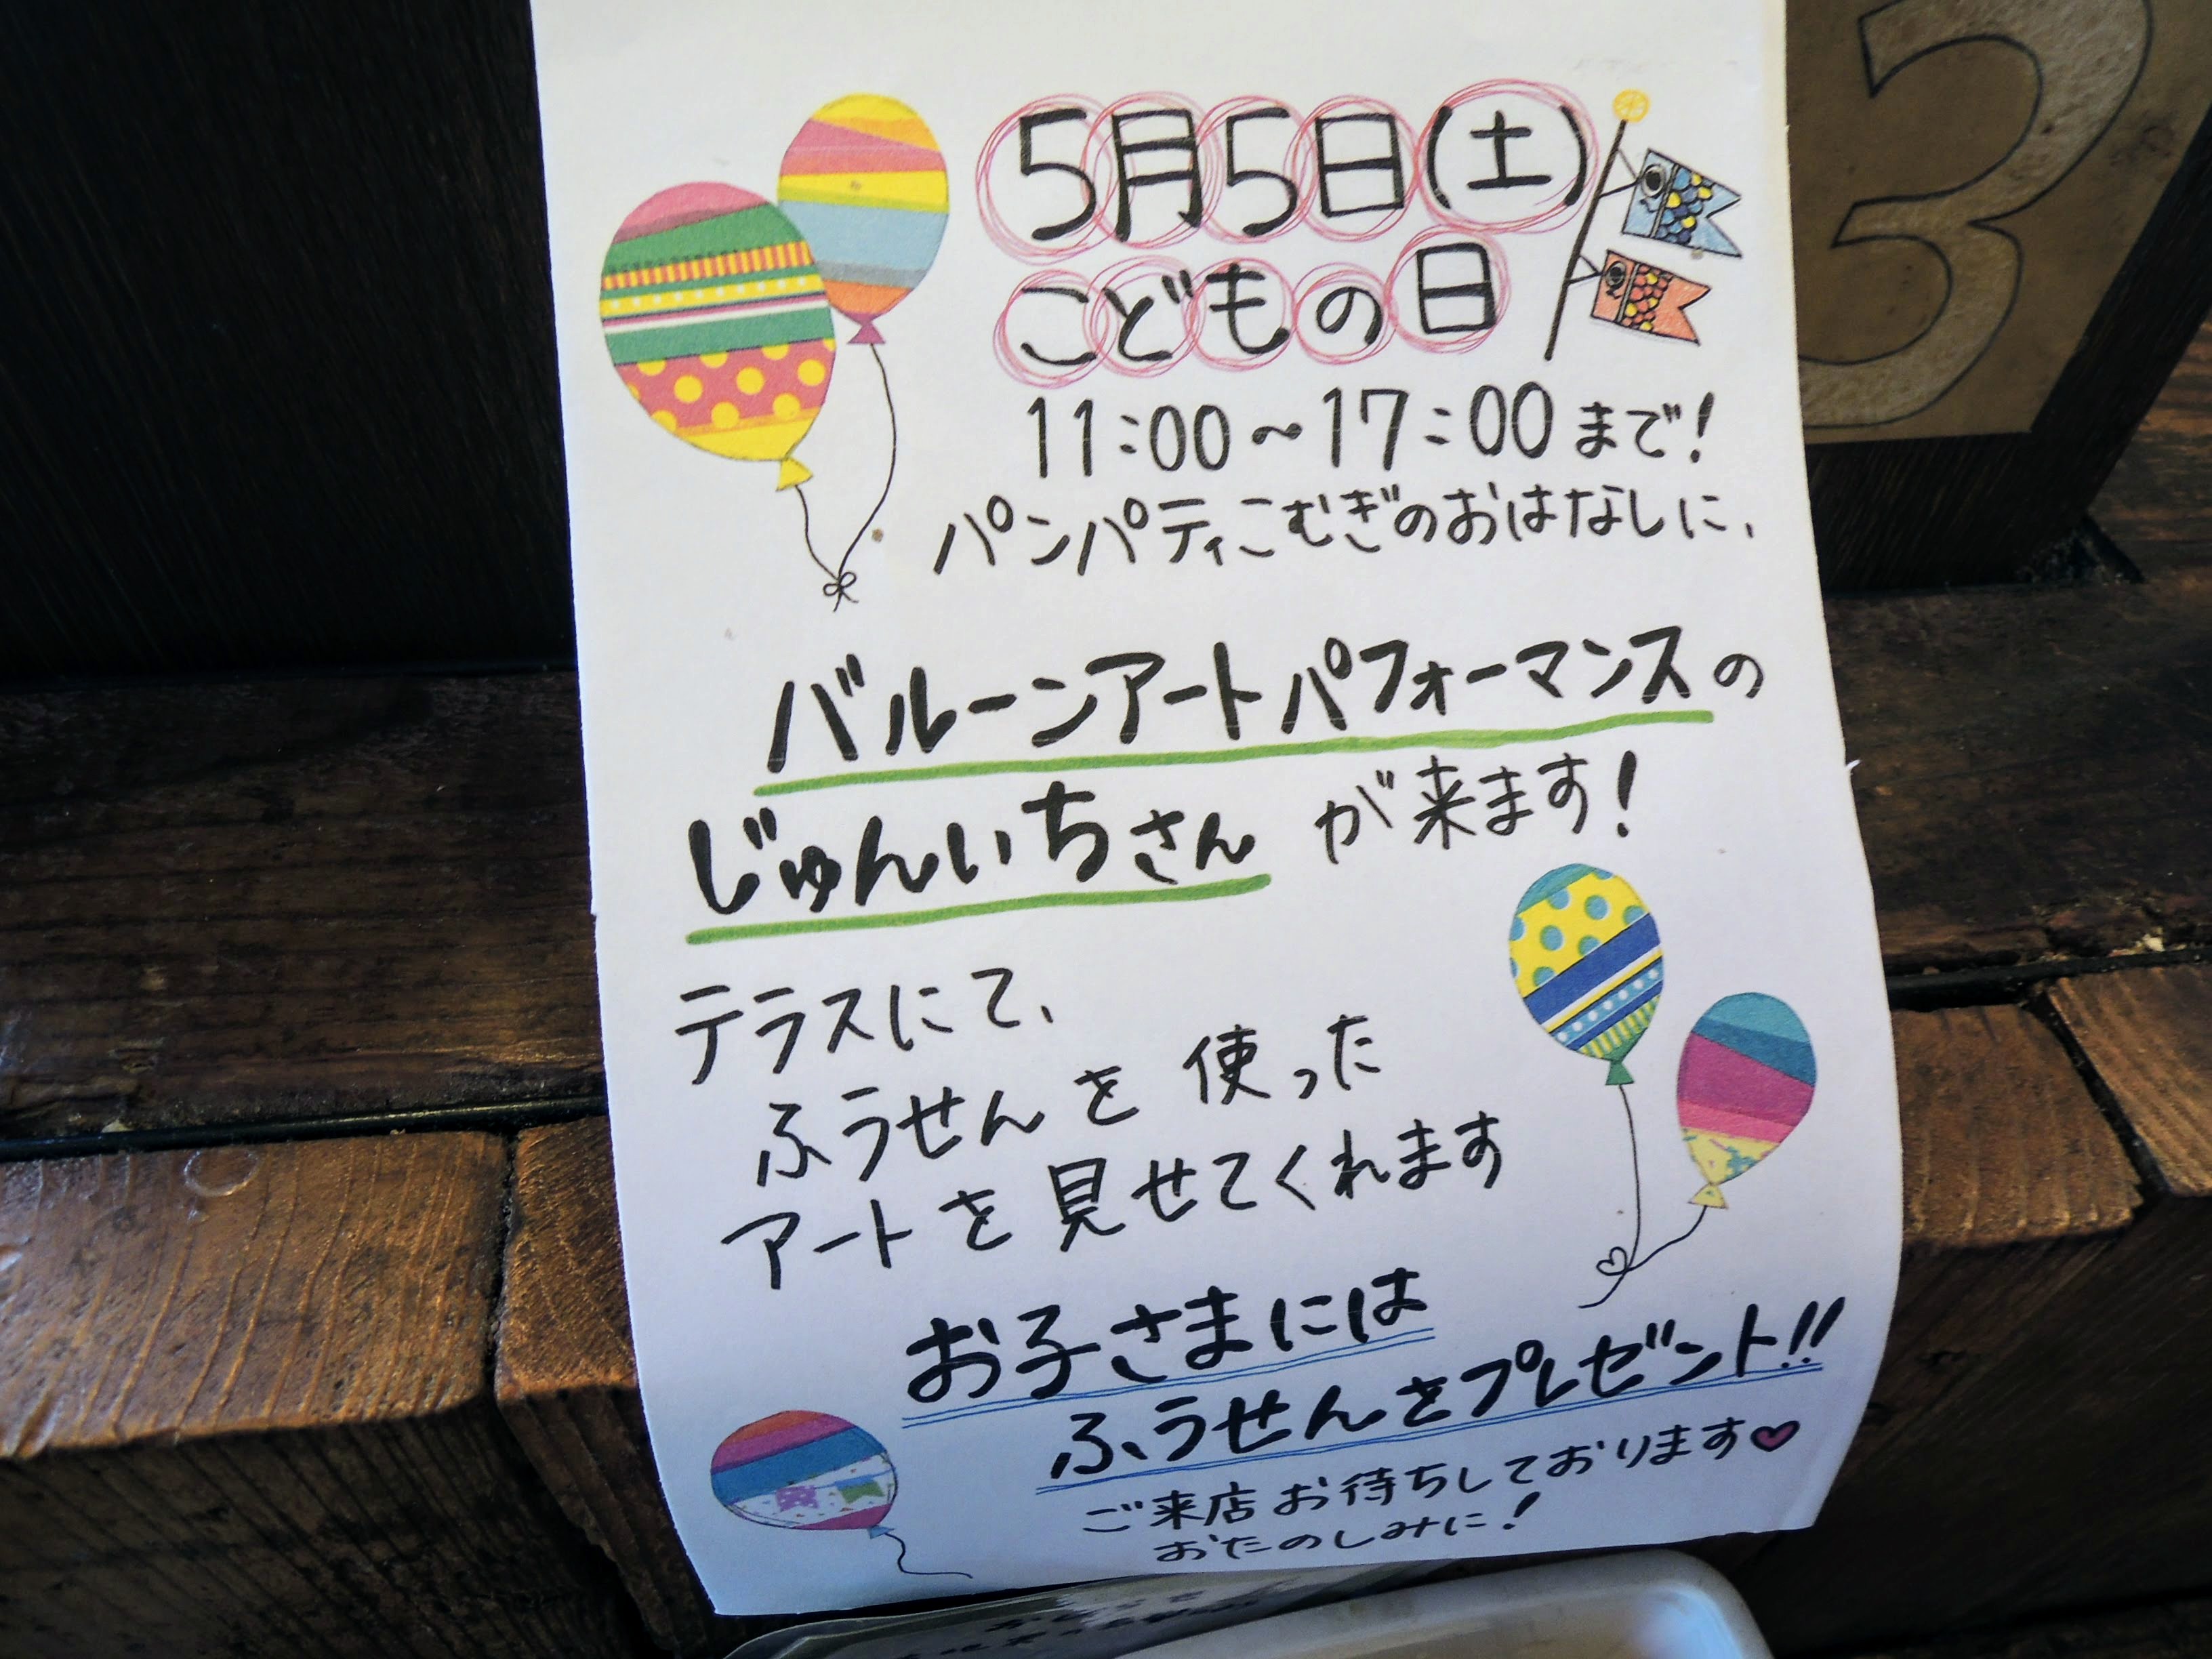 5月5日(土)
こどもの日
11:00～17:00まで!
パンパティこむぎのおはなしに、
バルーンアートパフォーマンスの
じゅんいちさんが来ます!
テラスにて、
ふうせんを使った
アートを見せてくれます
お子さまには
ふうせんをプレゼント!!
ご来店お待ちしております♥
おたのしみに!
3